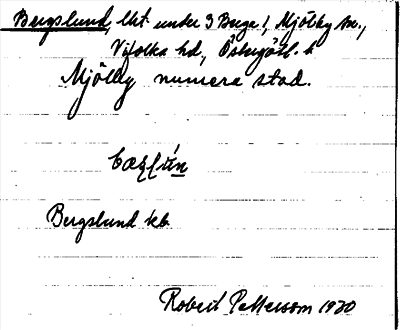 Bergslund, lht. under 3 Berge 1, Mjölby sn.,
Vifolka hd, Östergötl. l.
Mjölby numera stad.
Bergslund kb
Robert Pettersson 1920